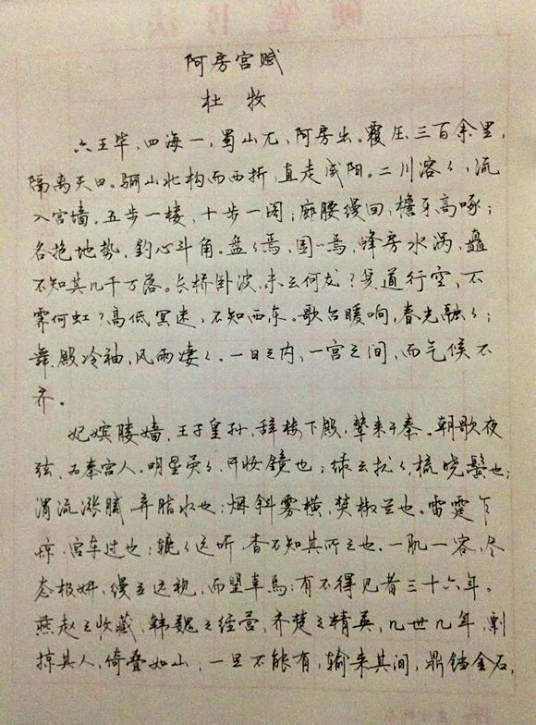 硬笔书法
阿房宫赋
杜牧
六王毕,四海一,蜀山兀,阿房出。覆压三百余里,
隔离天日。骊山北构而西折,直走咸阳。二川溶々,流
入宫墙。五步一楼,十步一阁;廊腰缦回,檐牙高啄;
各抱地势,钩心斗角。盘々焉,囷々焉,蜂房水涡,矗
不知其几千万落。长桥卧波,未云何龙?复道行空,不
霁何虹?高低冥迷,不知西东。歌台暖响,春光融々;
舞殿冷袖,风雨凄々。一日之内,一宫之间,而气候不
齐。
妃嫔媵嫱,王子皇孙,辞楼下殿,辇来于秦。朝歌夜
弦,为秦宫人。明星荧々,开妆镜也;绿云扰々,梳晓鬟也;
渭流涨腻,弃脂水也;烟斜雾横,焚椒兰也。雷霆乍
惊,宫车过也;辘々远听,杳不知其所之也。一肌一容,尽
态极妍,缦立远视,而望幸焉;有不得见者三十六年。
燕赵之收藏,韩魏之经营,齐楚之精英,几世几年,剽
掠其人,倚叠如山;一旦不能有,输来其间,鼎铛金石,